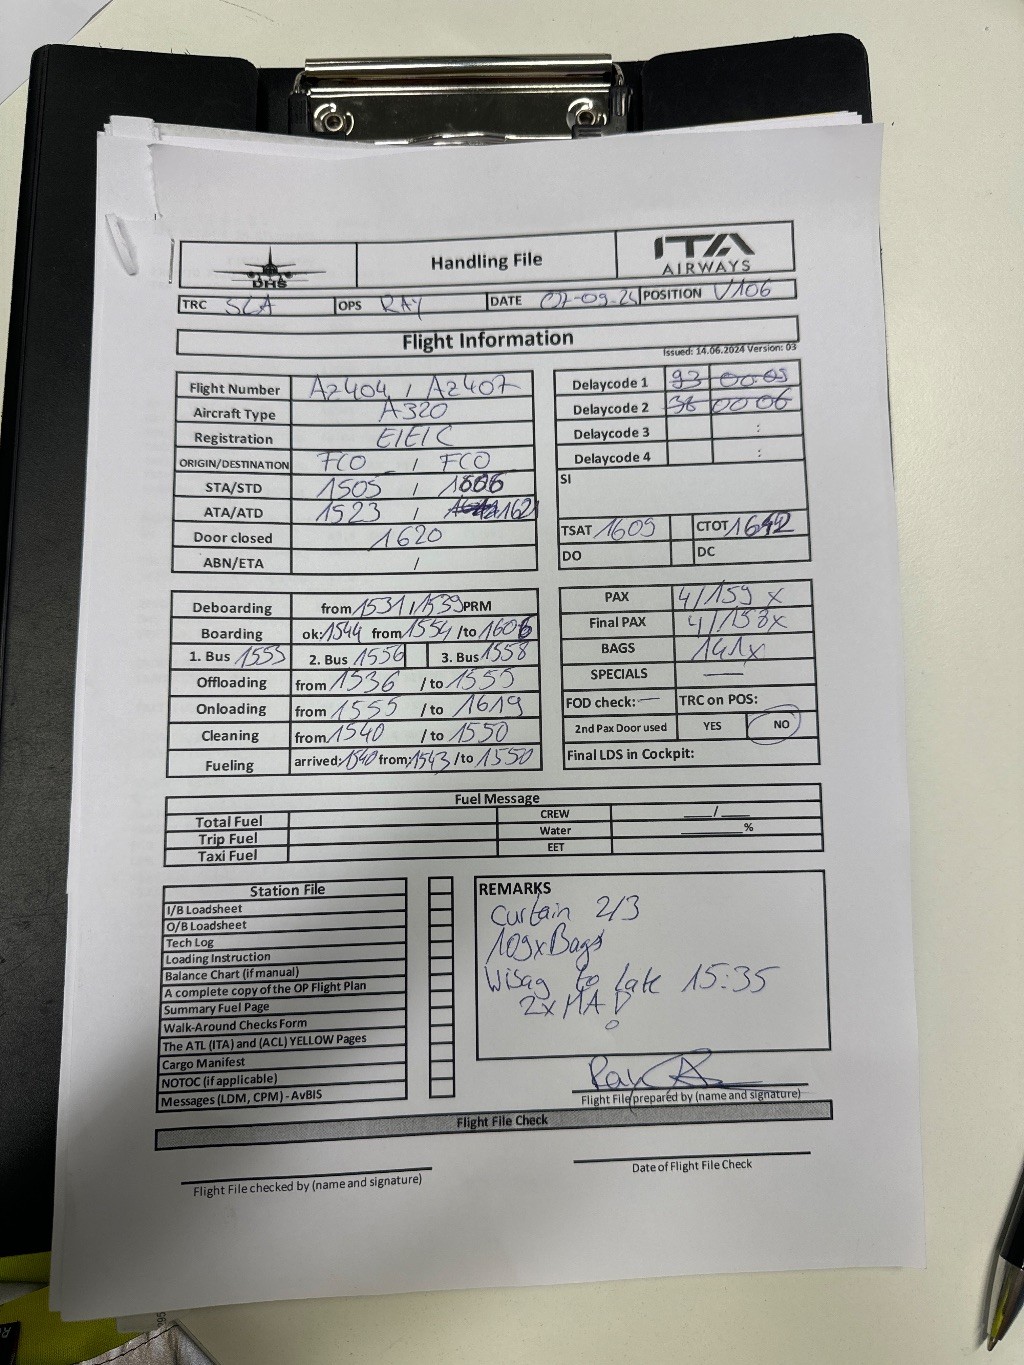 DHS
Handling File
ITA
AIRWAYS
TRC SCA OPS RAY DATE 07-09-24 POSITION V106
Flight Information
Issued: 14.06.2024 Version: 03
Flight Number AZ404 / AZ407
Aircraft Type A320
Registration EIEIC
ORIGIN/DESTINATION FCO / FCO
STA/STD 1505 / 1606
ATA/ATD 1523 / 1621
Door closed 1620
ABN/ETA /
Delaycode 1 93 00:09
Delaycode 2 36 00 06
Delaycode 3 :
Delaycode 4 :
SI
TSAT 1609 CTOT 1642
DO DC
Deboarding from 1531 / 1539 PRM
Boarding ok: 1544 from 1554 / to 1606
1. Bus 1553 2. Bus 1556 3. Bus 1558
Offloading from 1536 / to 1555
Onloading from 1555 / to 1619
Cleaning from 1540 / to 1550
Fueling arrived: 1540 from: 1543 / to 1550
PAX 4/159 x
Final PAX 4/158x
BAGS 141x
SPECIALS —
FOD check: — TRC on POS:
2nd Pax Door used YES NO
Final LDS in Cockpit:
Fuel Message
Total Fuel CREW ___/___
Trip Fuel Water ______%
Taxi Fuel EET
Station File
I/B Loadsheet
O/B Loadsheet
Tech Log
Loading Instruction
Balance Chart (if manual)
A complete copy of the OP Flight Plan
Summary Fuel Page
Walk-Around Checks Form
The ATL (ITA) and (ACL) YELLOW Pages
Cargo Manifest
NOTOC (if applicable)
Messages (LDM, CPM) - AvBIS
REMARKS
Curtain 2/3
109x Bags
Wisag to late 15:35
2x MA!
Ray
Flight File prepared by (name and signature)
Flight File Check
Flight File checked by (name and signature)
Date of Flight File Check